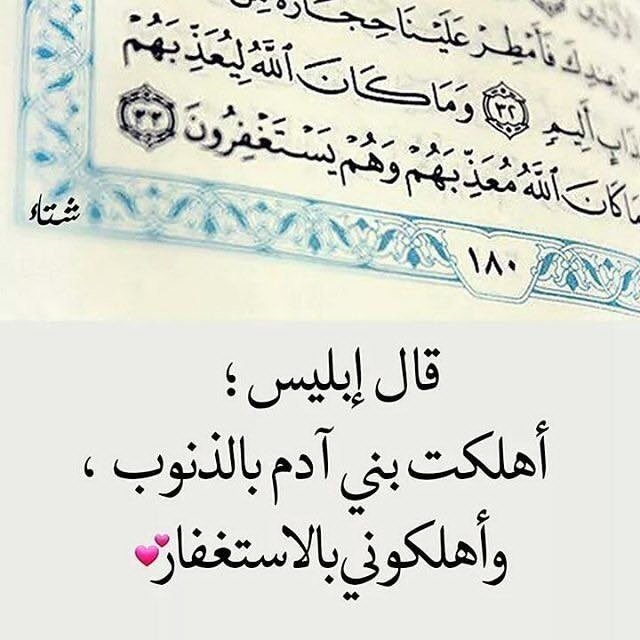 عِندِكَ فَأَمْطِرْ عَلَيْنَا حِجَارَةً مِّنَ
أَلِيمٍ ٣٢ وَمَا كَانَ ٱللَّهُ لِيُعَذِّبَهُمْ
كَانَ ٱللَّهُ مُعَذِّبَهُمْ وَهُمْ يَسْتَغْفِرُونَ ٣٣
شتاء
١٨٠
قال إبليس ؛
أهلكت بني آدم بالذنوب ،
وأهلكوني بالاستغفار💕